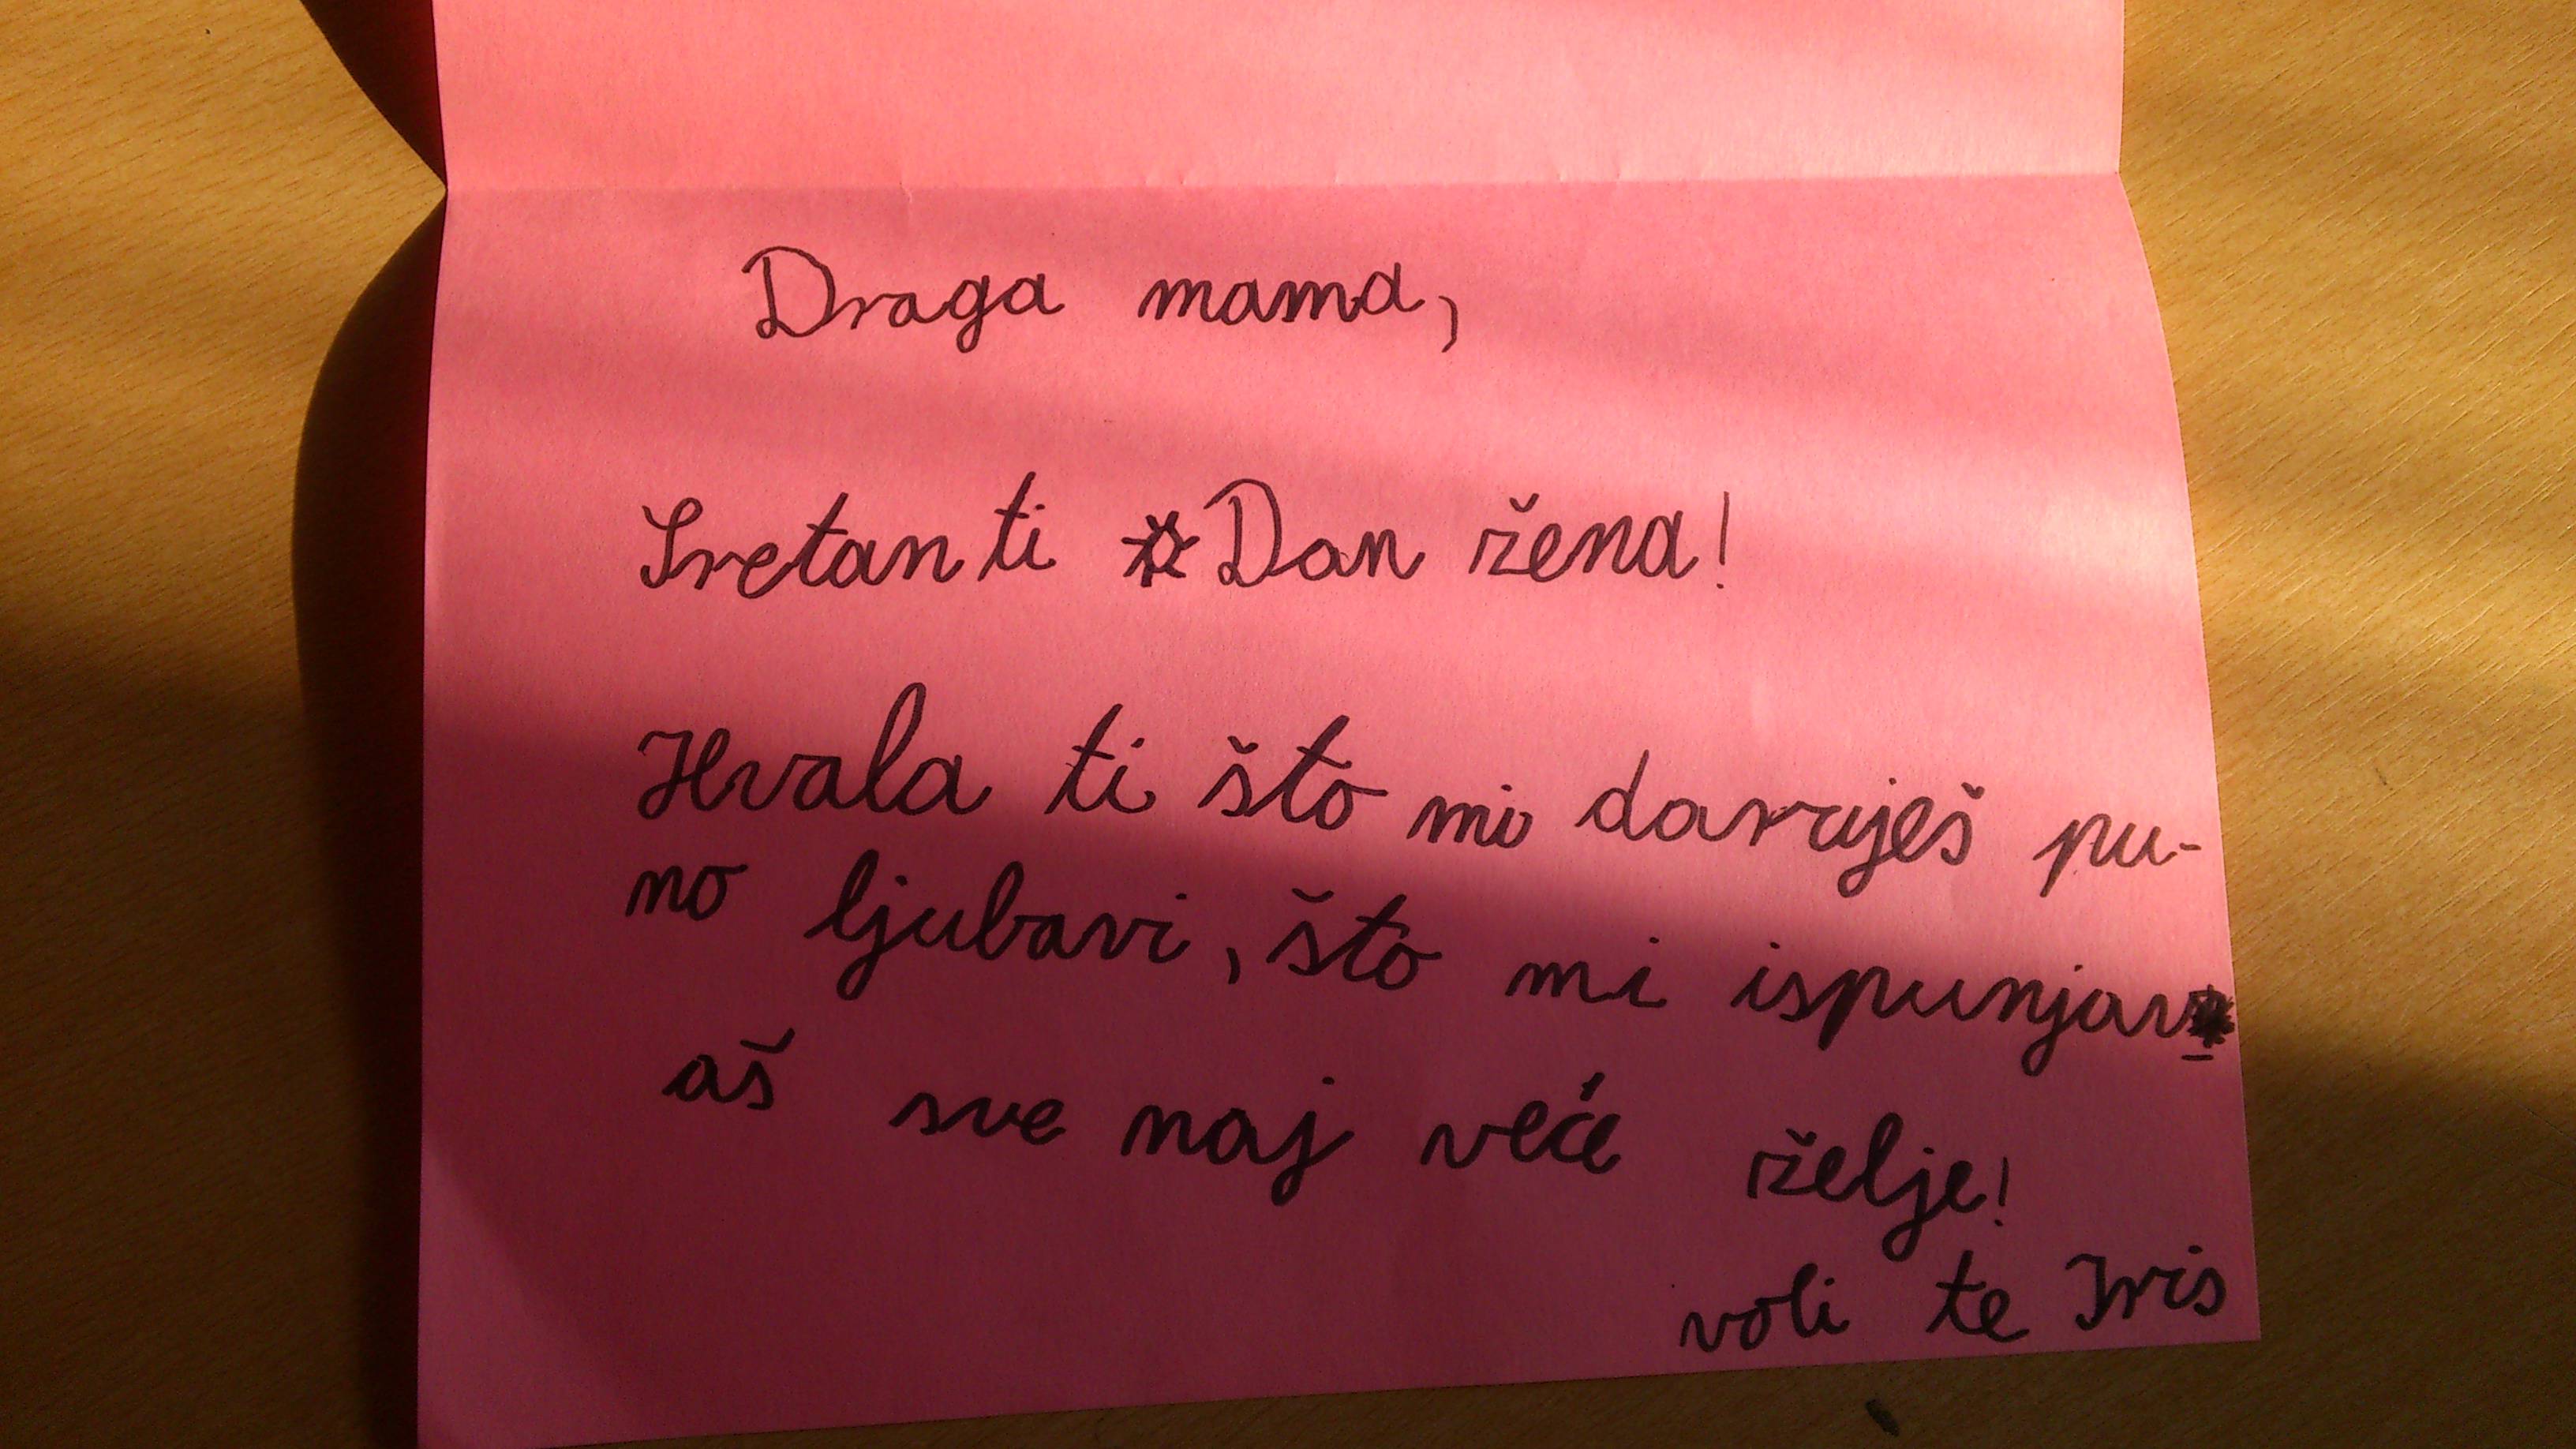 Draga mama,
Sretan ti Dan žena!
Hvala ti što mi daruješ pu-
no ljubavi, što mi ispunjav
aš sve naj veće želje!
voli te Iris